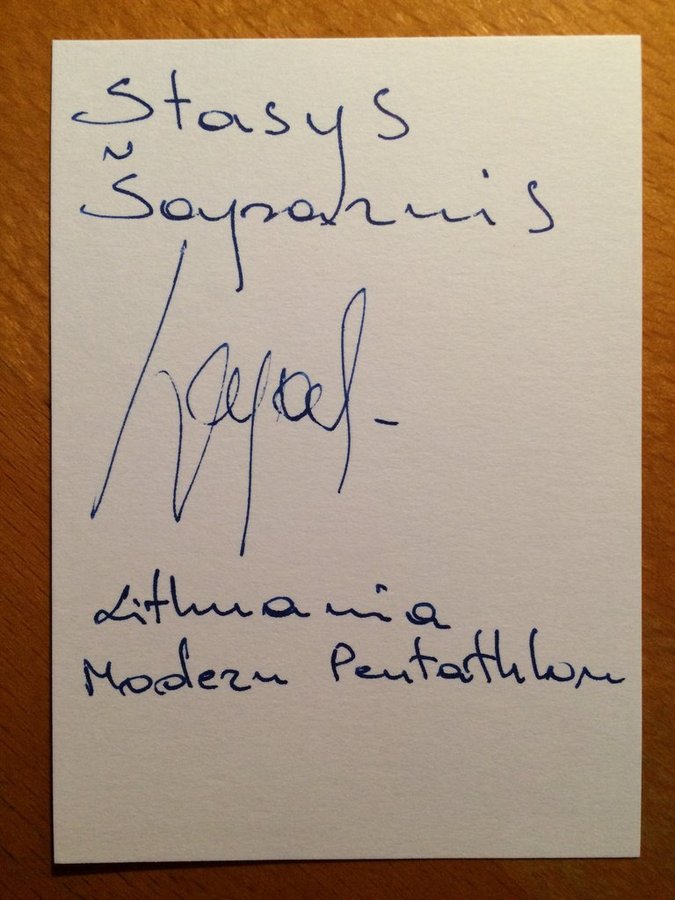 Stasys
Šaparnis
Lithuania
Modern Pentathlon